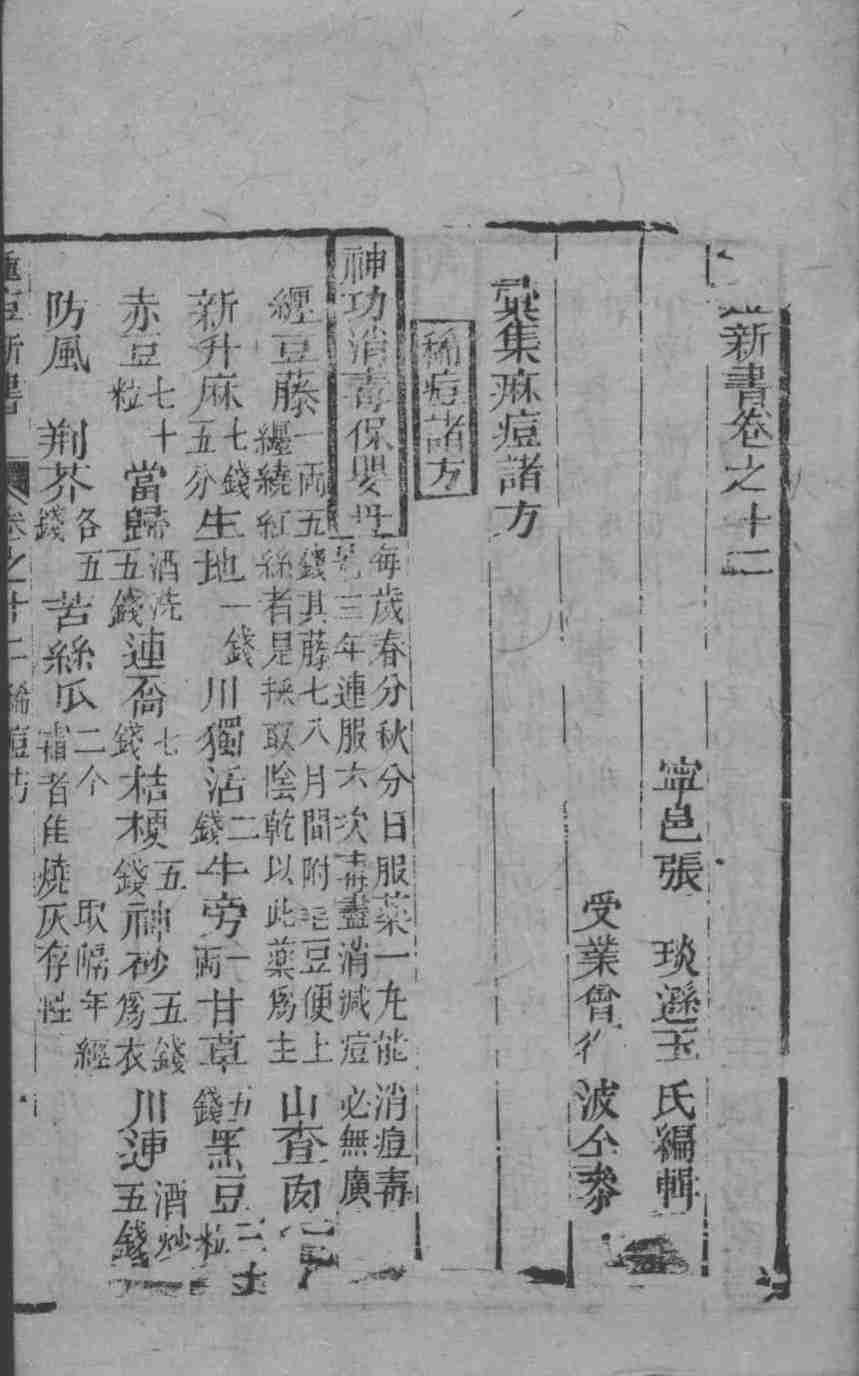 新書卷之十二
寧邑張 琰遜玉氏編輯
受業曾 波仝參
彙集痳痘諸方
稀痘諸方
神功消毒保嬰丹 每歲春分秋分日服藥一丸能消痘毒
三年連服六次毒盡消滅痘必無廣
纏豆藤 一兩五錢其藤七八月間附毛豆便上
纏繞紅絲者是採取陰乾以此藥爲主 山查肉
新升麻 七錢五分 生地 一錢 川獨活 二錢 牛旁 一兩 甘草 五錢 黑豆 三十粒
赤豆 七十粒 當歸 酒洗五錢 連喬 七錢 桔梗 五錢 神砂 五錢爲衣 川連 酒炒五錢
防風 荆芥 各五錢 苦絲瓜 二个 取隔年經霜者佳燒灰存性
種豆新書 卷之十二 稀痘方